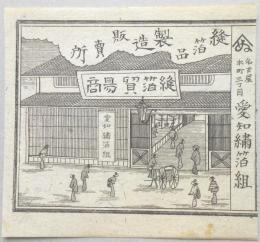 縫箔品製造販賣所
縫箔貿易商
愛知繍箔組
名古屋
本町三丁目
愛知繍箔組